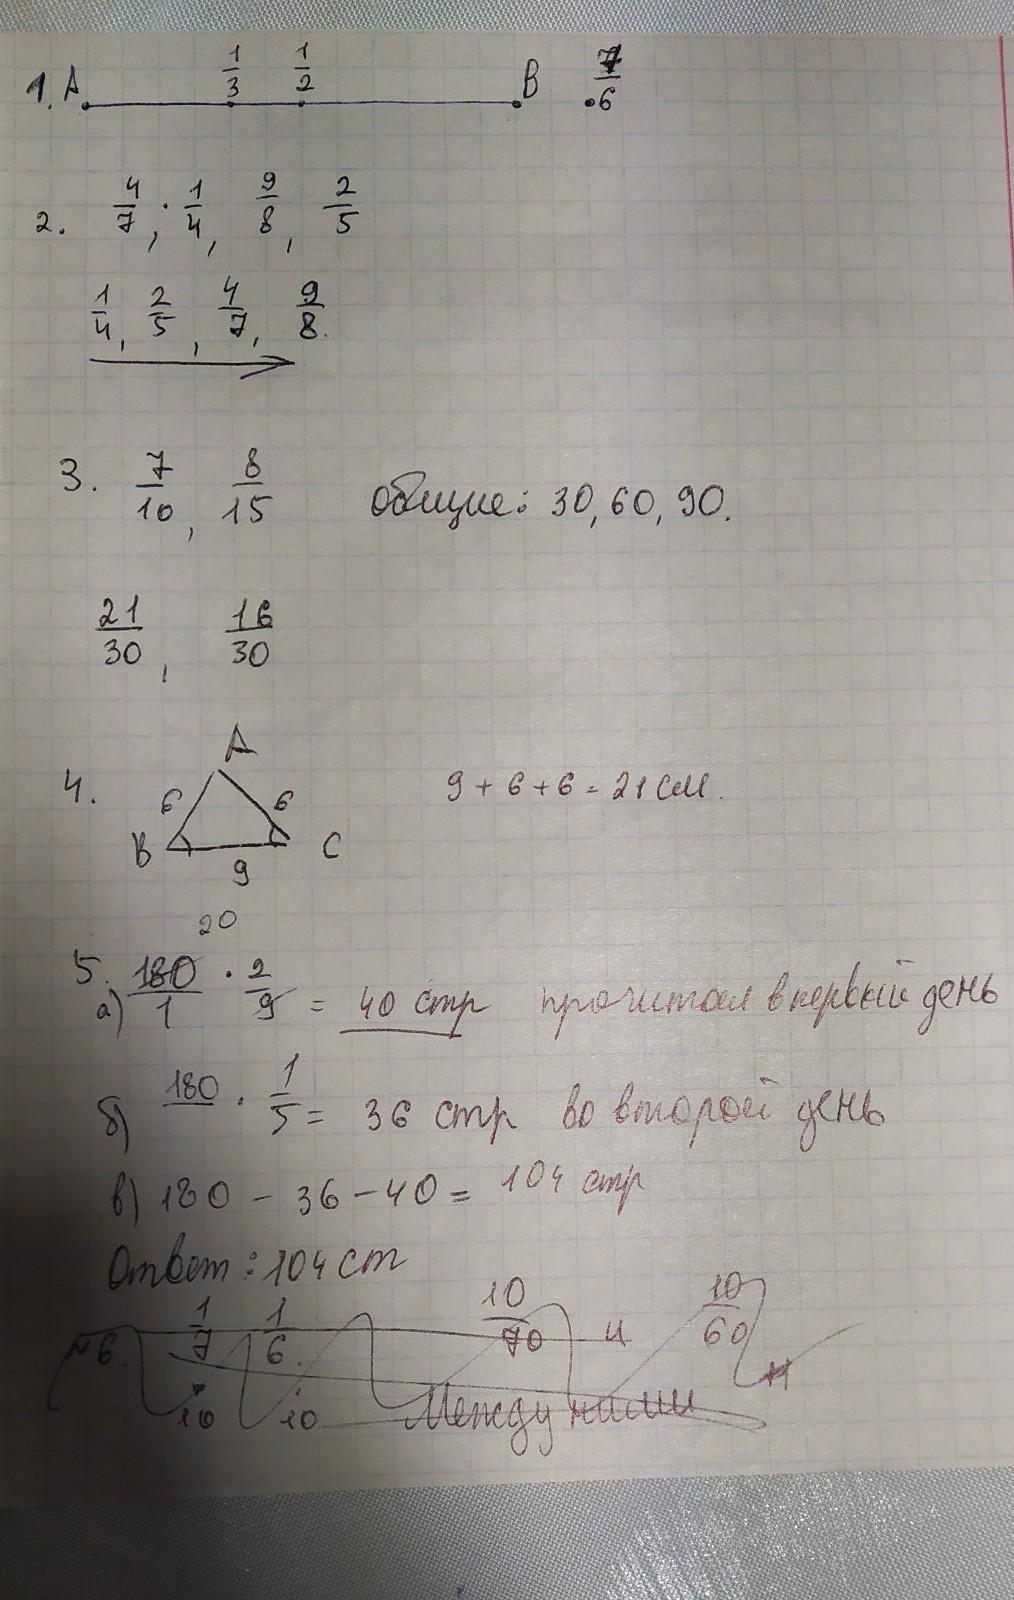 1. A 1/3 1/2 B 7/6
2. 4/7, 1/4, 9/8, 2/5
1/4, 2/5, 4/7, 9/8.
3. 7/10, 8/15 общие: 30, 60, 90.
21/30, 16/30
A
4. 6 6 9 + 6 + 6 = 21 см.
B C
9
20
5. а) 180/1 · 2/9 = 40 стр прочитал в первый день
б) 180 · 1/5 = 36 стр во второй день
в) 180 - 36 - 40 = 104 стр
Ответ: 104 ст
№6. 1/7 1/6. 10/70 и 10/60
10 10 Между ними и